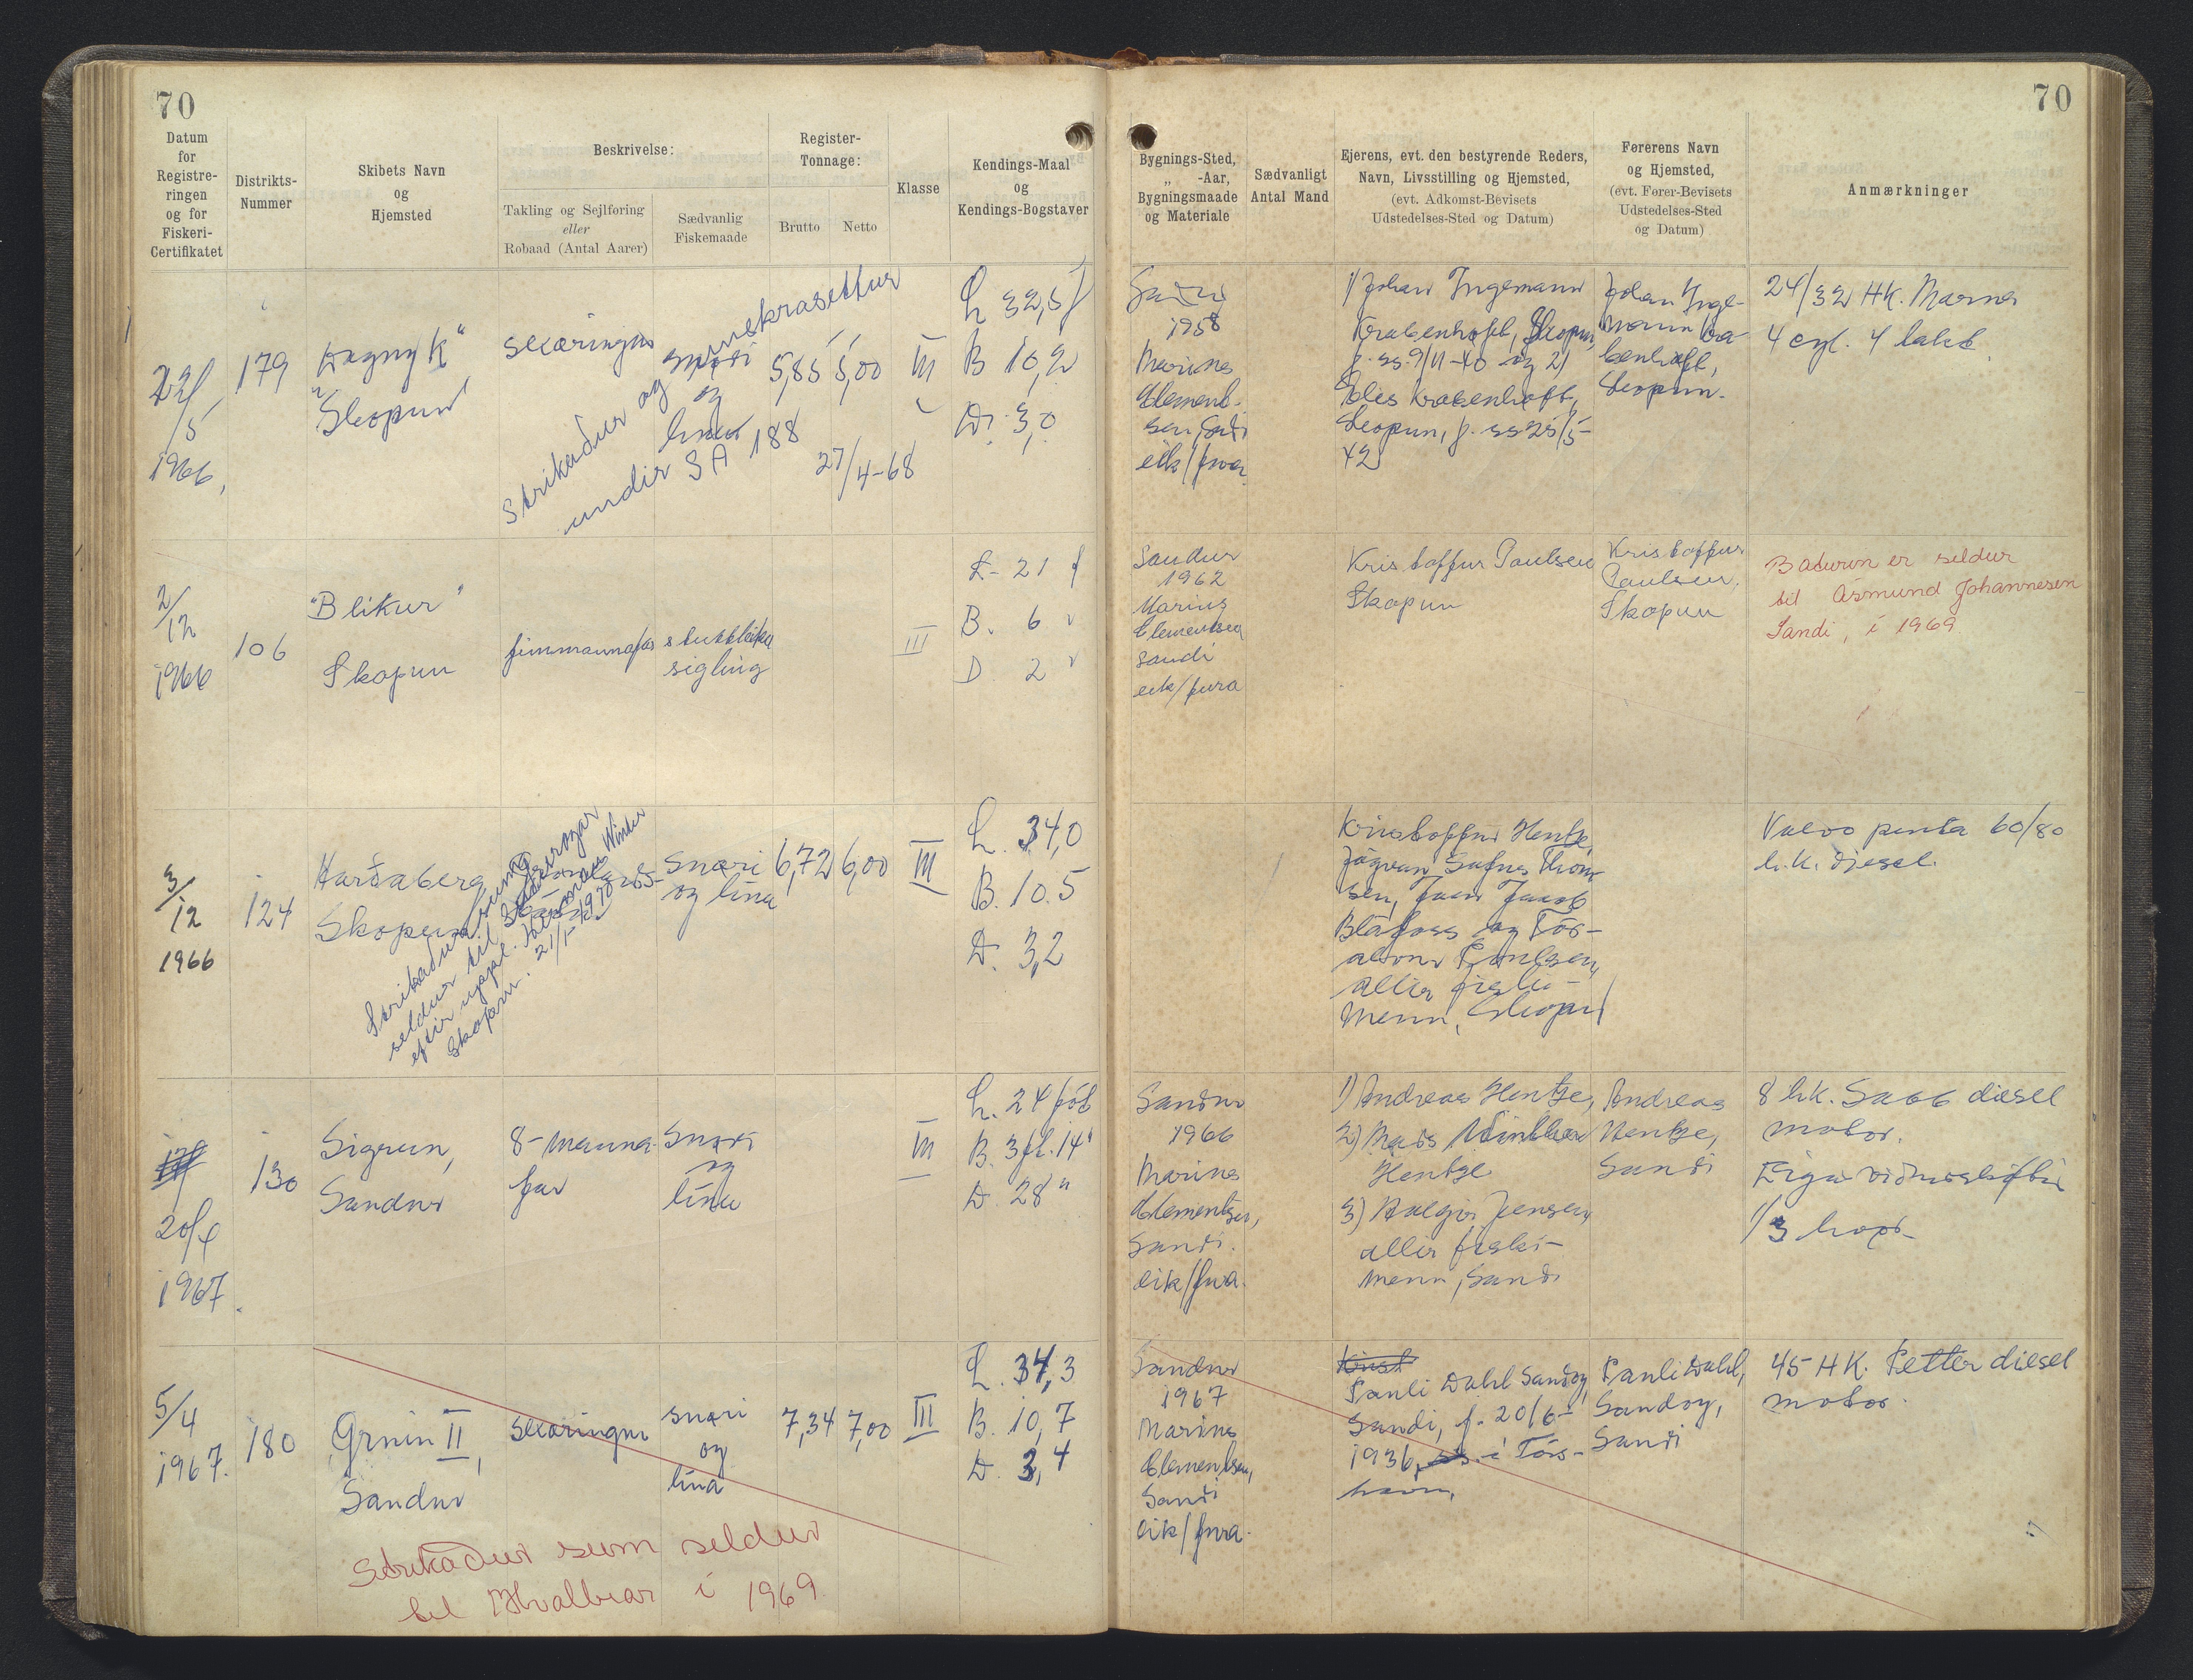 70
70
Datum
for
Registre-
ringen
og for
Fiskeri-
Certifikatet
Distrikts-
Nummer
Skibets Navn
og
Hjemsted
Beskrivelse:
Takling og Sejlføring
eller
Robaad (Antal Aarer)
Sædvanlig
Fiskemaade
Register-
Tonnage:
Brutto
Netto
Klasse
Kendings-Maal
og
Kendings-Bogstaver
Bygnings-Sted,
„ -Aar,
Bygningsmaade
og Materiale
Sædvanligt
Antal Mand
Ejerens, evt. den bestyrende Reders,
Navn, Livsstilling og Hjemsted,
(evt. Adkomst-Bevisets
Udstedelses-Sted og Datum)
Førerens Navn
og Hjemsted,
(evt. Fører-Bevisets
Udstedelses-Sted
og Datum)
Anmærkninger
/5
1966,
179
"Dagny K"
Skopun
snøri
og
línu
5,85
5,00
III
L 32,5 f
B 10,2
D. 3,0
Strikaður og
undir SA 188
27/4-68
1958
Marius
Clement-
sen, Sandi
eik/fura
1) Johan Ingemann
Krabenhøft, Skopun,
f. ss. 9/11-40 og 2)
Krabenhøft,
Skopun, f. ss 25/5-
42
Johan Inge-
mann Kra-
benhøft,
Skopun.
24/32 HK. Marna
4 cyl. 4 takt.
2/12
1966
106
"Blikur"
Skopun
fimmannafar
stuttleika
sigling
III
L- 21 f
B. 6 "
D 2 "
Sandur
1962
Marius
Clementsen
Sandi
eik/fura
Kristoffur Paulsen
Skopun
Kristoffur
Paulsen,
Skopun
Báturin er seldur
til Ásmund Johannesen
Sandi, í 1969
3/12
1966
124
Harðaberg,
Skopun
snøri
og lína
6,72
6,00
III
L. 34,0
B. 10.5
D. 3,2
Strikaður, sum
seldur til
eftir uppl.
Skopun. 21/1-1970
Kristoffur Hentze,
Jógvan Thom-
sen, Jacob
Bláfoss og Tór-
Poulsen,
allir fiski-
menn, Skopun
Volvo penta 60/80
h.k. diesel.
20/4
1967.
130
Sigrun,
Sandur
8-manna-
far
snøri
og
línu
III
L. 24 fót
B. 3 fl. 14"
D. 28"
Sandur
1966
Marius
Clementsen,
Sandi.
eik/fura.
1) Andreas Hentze,
2) Mads Winther
Hentze
3) Jensen,
allir fiski-
menn, Sandi
Andreas
Hentze,
Sandi
8 hk. Saab diesel
motor.
1/3 hvør.
5/4
1967.
180
Grunin II,
Sandur
snøri
og
lína
7,34
7,00
III
L. 34,3
B. 10,7
D. 3,4
Strikaður sum seldur
til Hvalbiar í 1969
Sandur
1967
Marius
Clementsen,
Sandi
eik/fura.
Pauli Dahl Sandoy,
Sandi, f. 20/6-
1936, í Tórs-
havn,
Pauli Dahl,
Sandoy,
Sandi
45 HK. Petter diesel
motor.